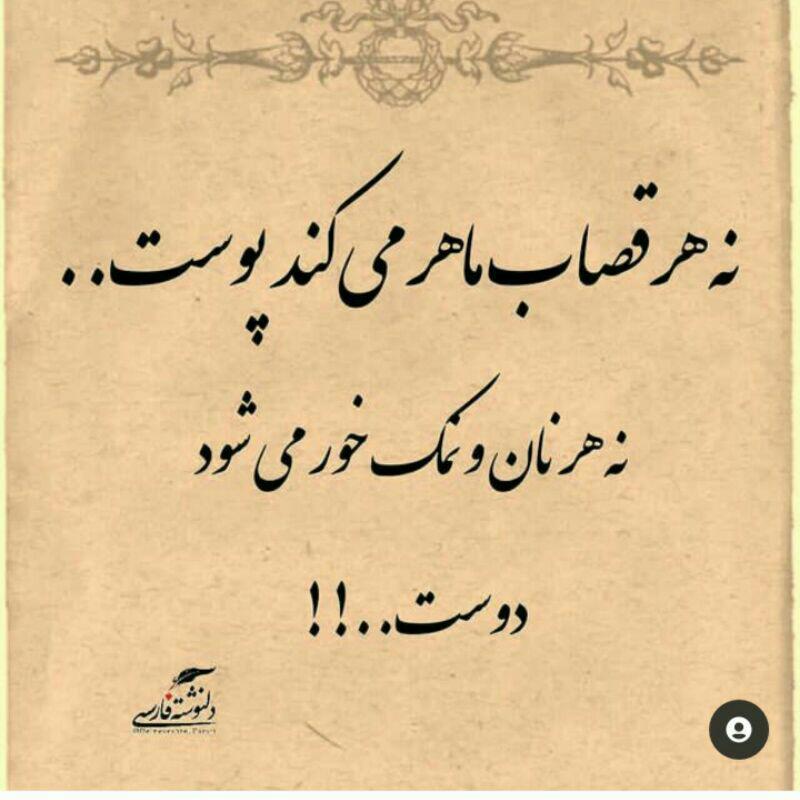 نه هر قصاب ماهر می کند پوست..
نه هر نان و نمک خور می شود
دوست..!!
دلنوشته فارسی